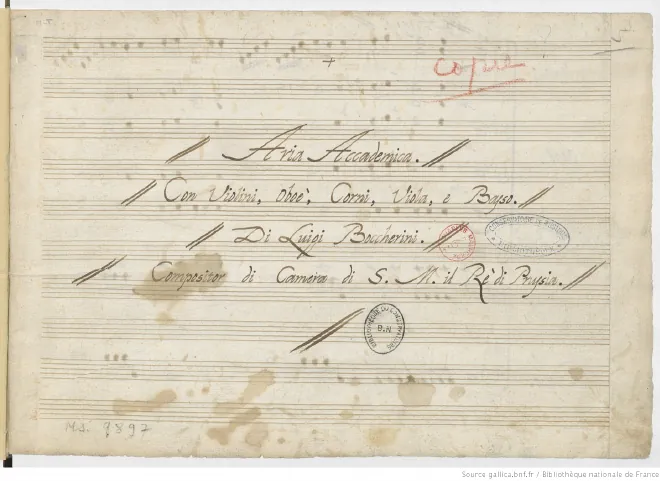 copie
Aria Accademica.
Con Violini, Oboè, Corni, Viola, e Basso.
Di Luigi Boccherini.
Compositor di Camera di S. M. il Rè di Prusia.
B.N
Ms. 1892
Source gallica.bnf.fr / Bibliothèque nationale de France